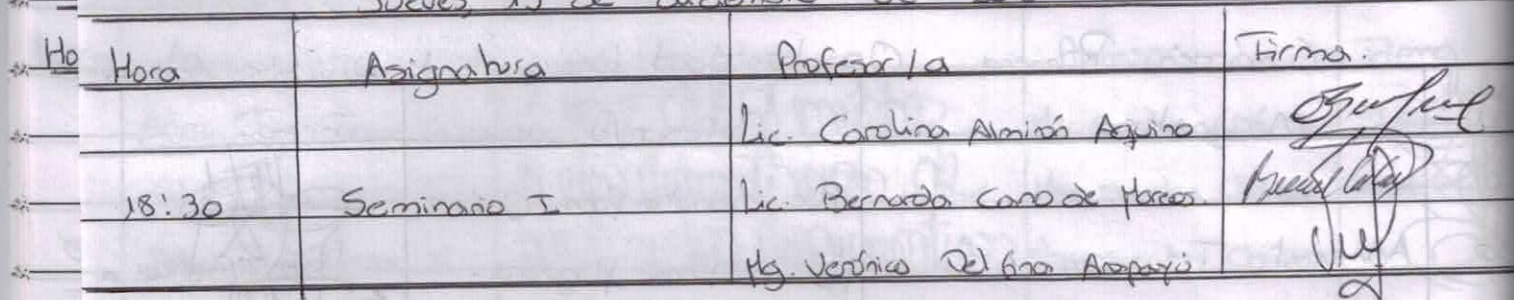 Ho
Hora Asignatura Profesor/a Firma.
Lic. Carolina Almirón Aquino
18:30 Seminario I Lic. Bernarda Cano de
Mg. Verónica Del